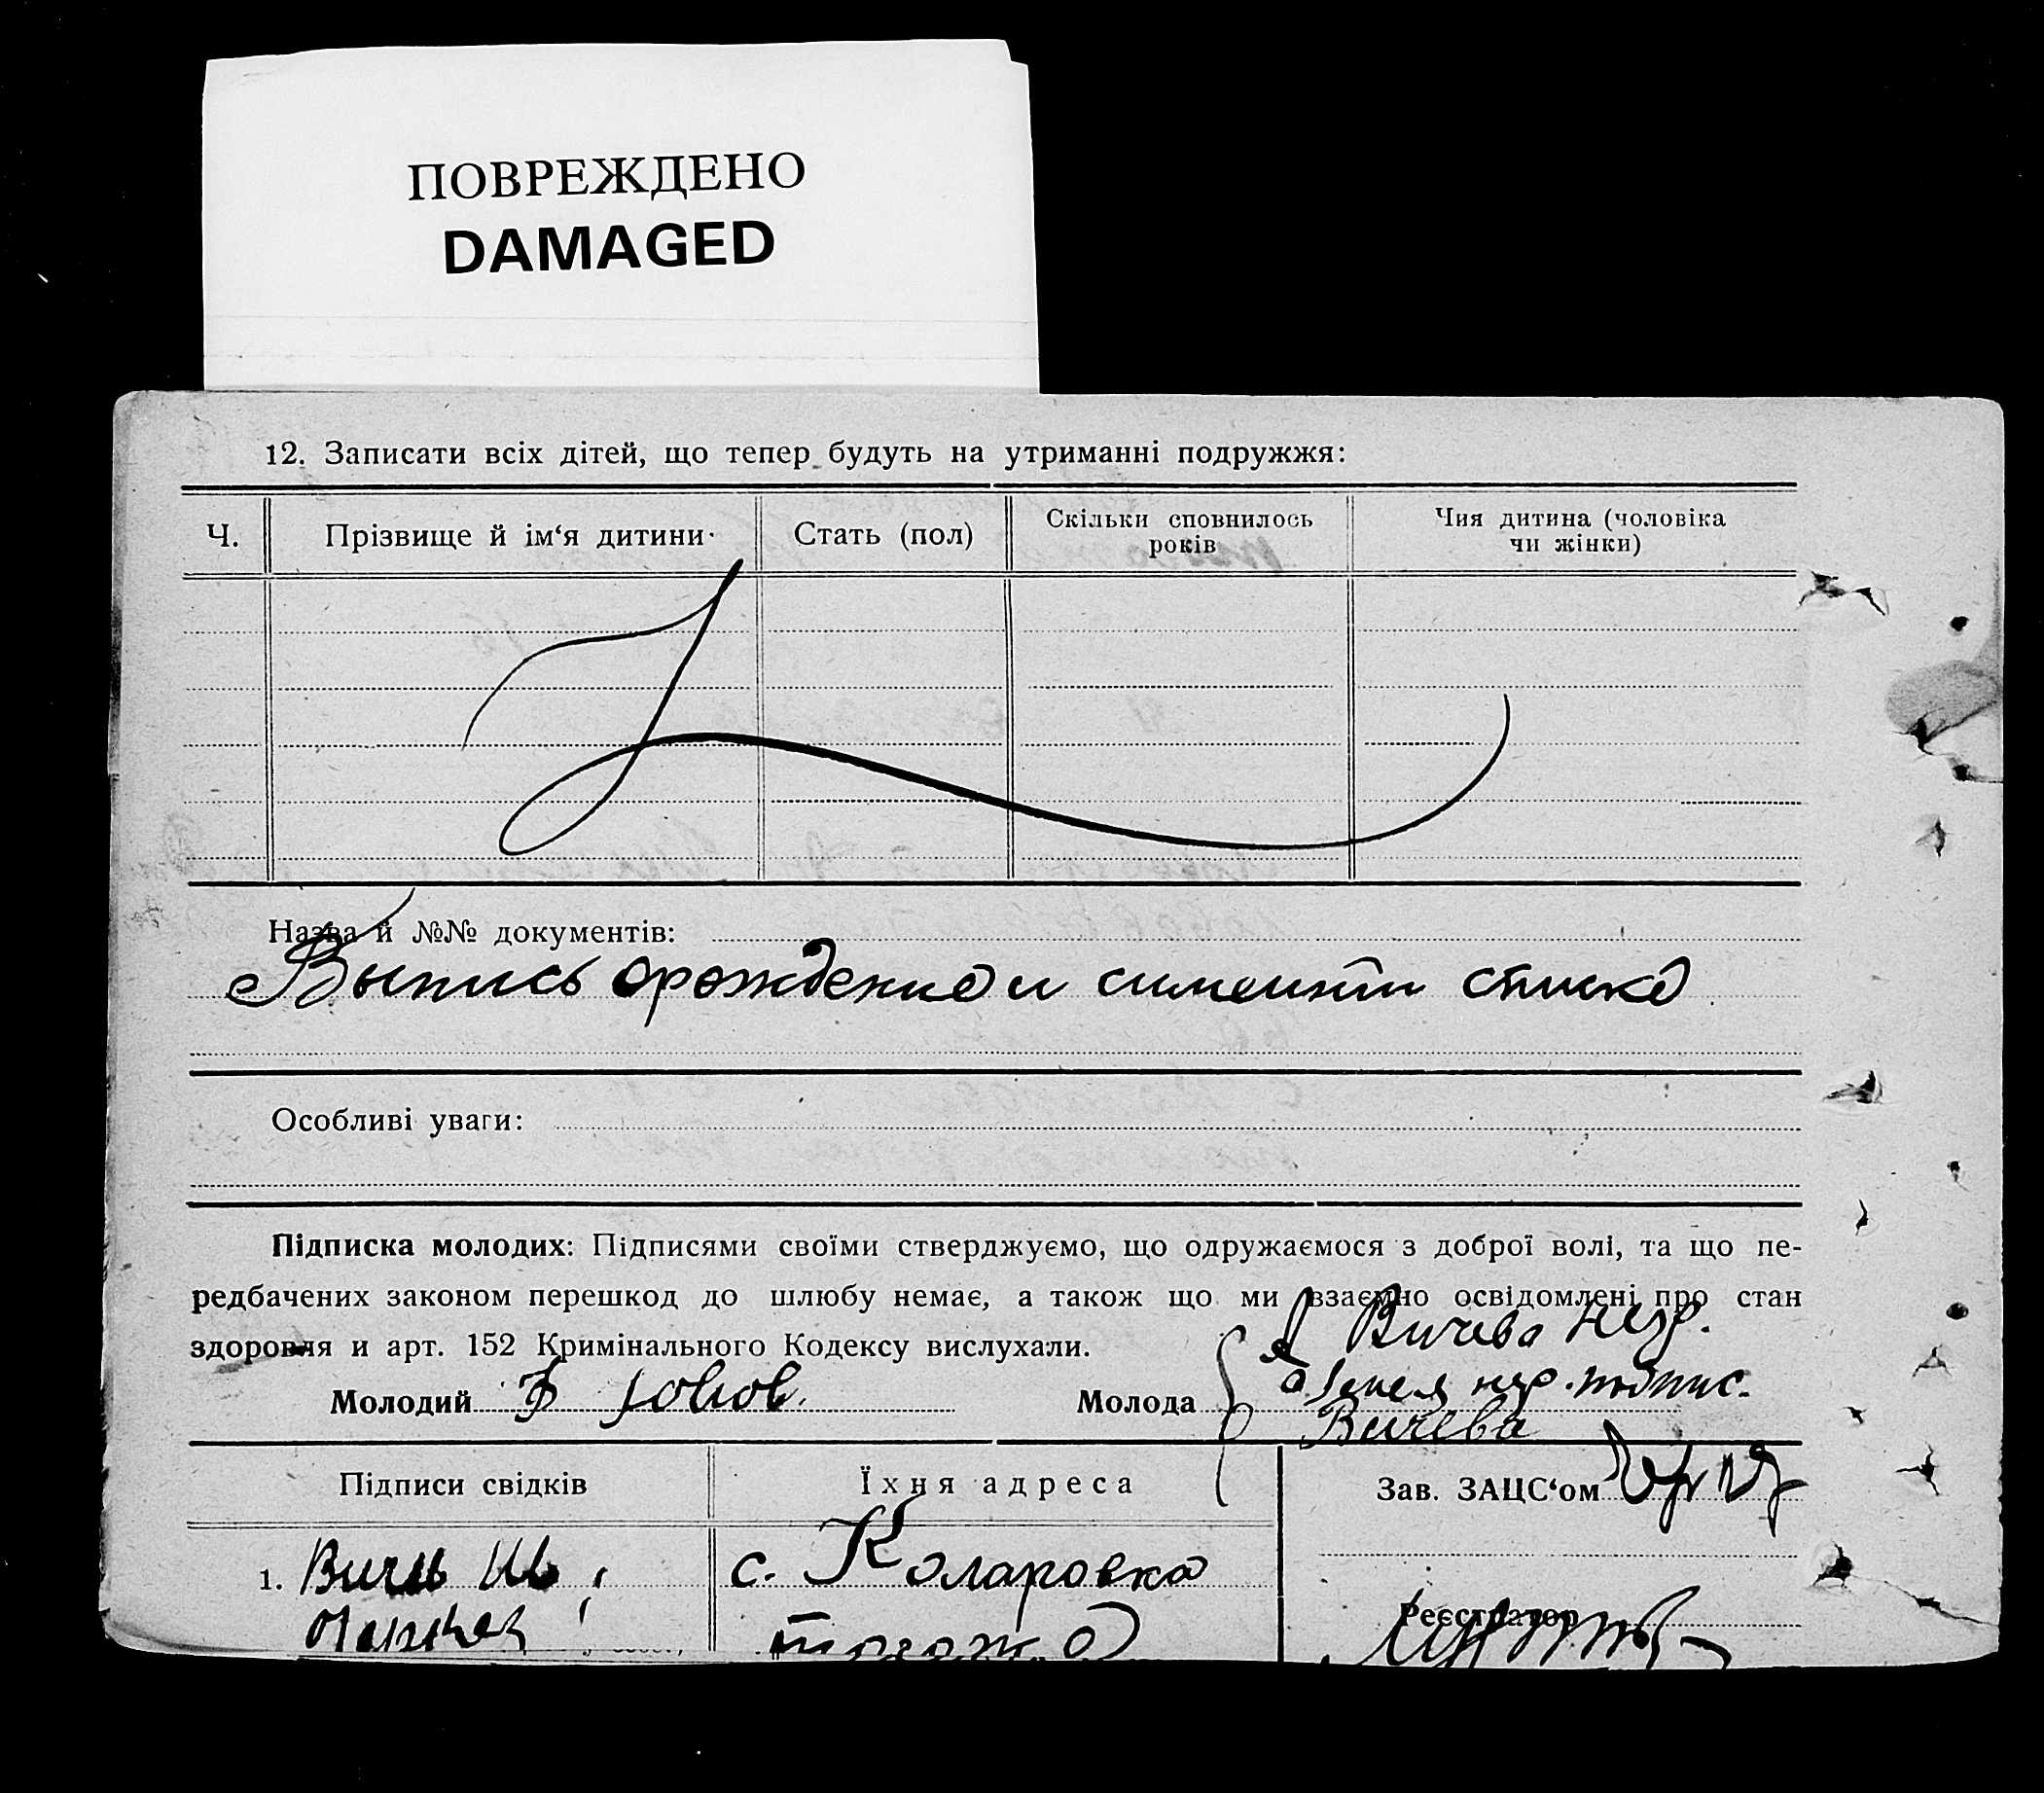 ПОВРЕЖДЕНО
DAMAGED
12. Записати всіх дітей, що тепер будуть на утриманні подружжя:
Ч.
Прізвище й ім‘я дитини
Стать (пол)
Скільки сповнилось
років
Чия дитина (чоловіка
чи жінки)
Назва й №№ документів:
Выпись орождение и списка
Особливі уваги:
Підписка молодих: Підписями своїми стверджуємо, що одружаємося з доброї волі, та що пе-
редбачених законом перешкод до шлюбу немає, а також що ми взаємно освідомлені про стан
здоровля и арт. 152 Кримінального Кодексу вислухали.
Вичева негр.
Молодий
Молода
Вичева
Підписи свідків
Їхня адреса
Зав. ЗАЦС‘ом
1.
с. Коларовка
Реєстратор
тогож.